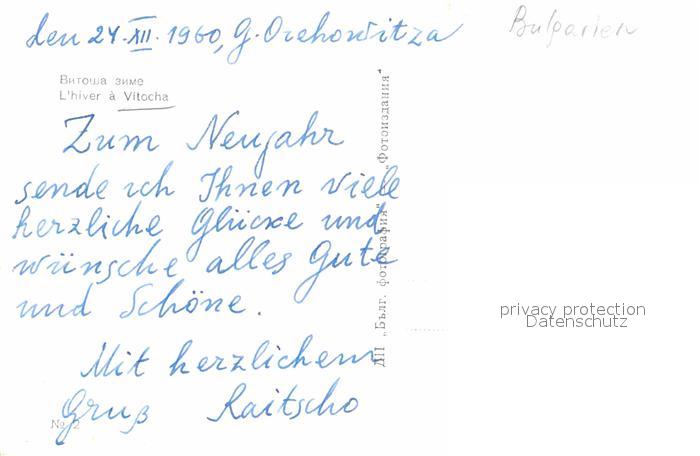 den 24. XII. 1960, G. Orehowitza
Bulgarien
Витоша зиме
L'hiver à Vitocha
Zum Neujahr
sende ich Ihnen viele
herzliche Glücke und
wünsche alles Gute
und Schöne.
Mit herzlichem
Gruß Raitscho
ДП „Бълг. фотография" „Фотоиздания"
privacy protection
Datenschutz
№ 2